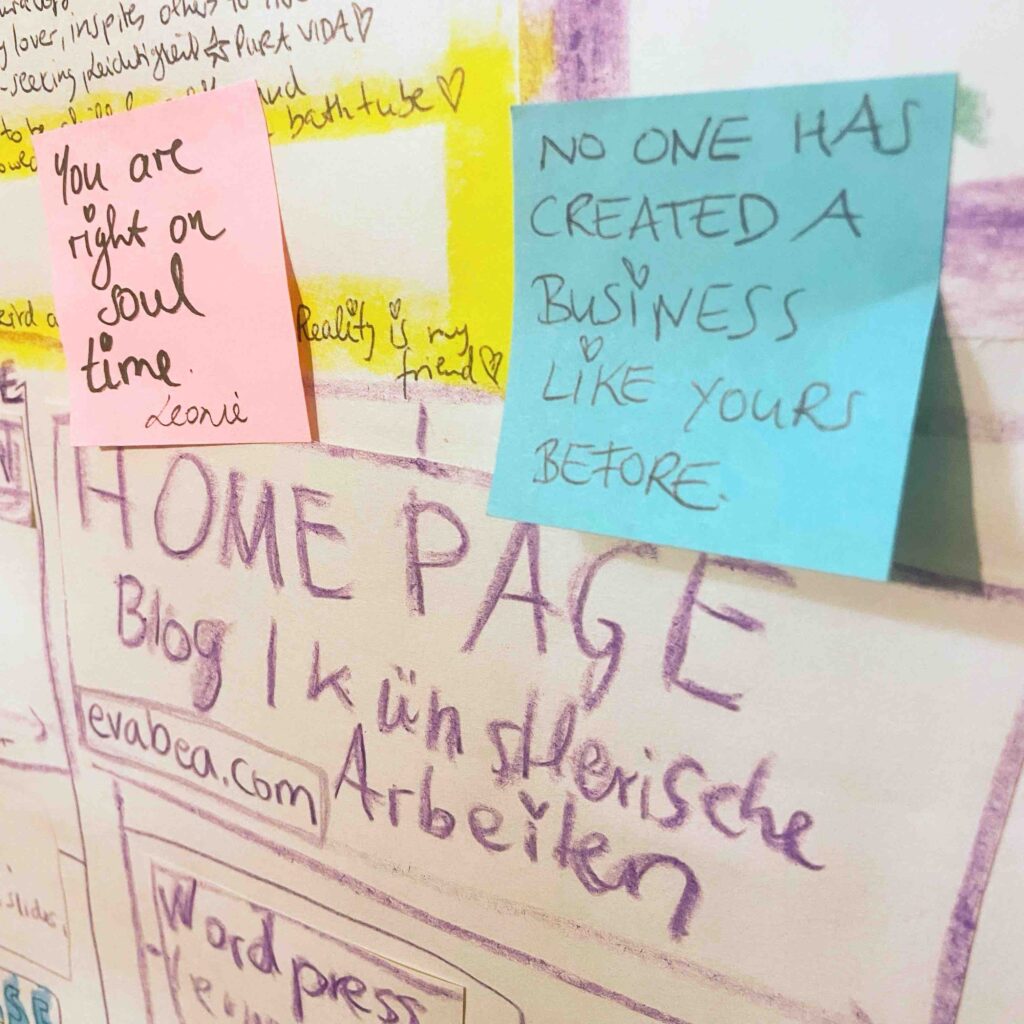 lover, inspires others to
-seeking, Leichtigkeit ☆ PURA VIDA ♡
to be and
bathtube ♡
You are
right on
soul
time.
Leonie
NO ONE HAS
CREATED A
BUSINESS
LIKE YOURS
BEFORE.
Reality is my
friend ♡
HOME PAGE
Blog | künstlerische
Arbeiten
evabea.com
Wordpress